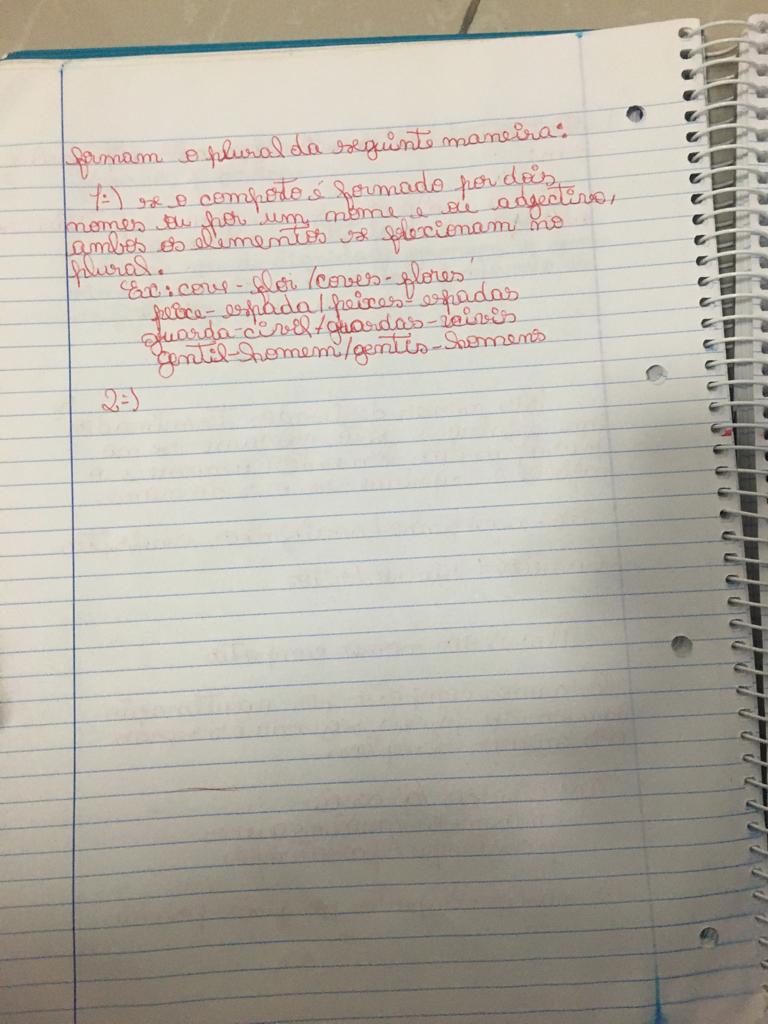 formam o plural da seguinte maneira:
1=) se o composto é formado por dois
nomes ou por um nome e ou adjectivo,
ambos os elementos se flexionam no
plural.
Ex: couve-flor/couves-flores
peixe-espada/peixes-espadas
guarda-civil/guardas-civis
gentil-homem/gentis-homens
2=)